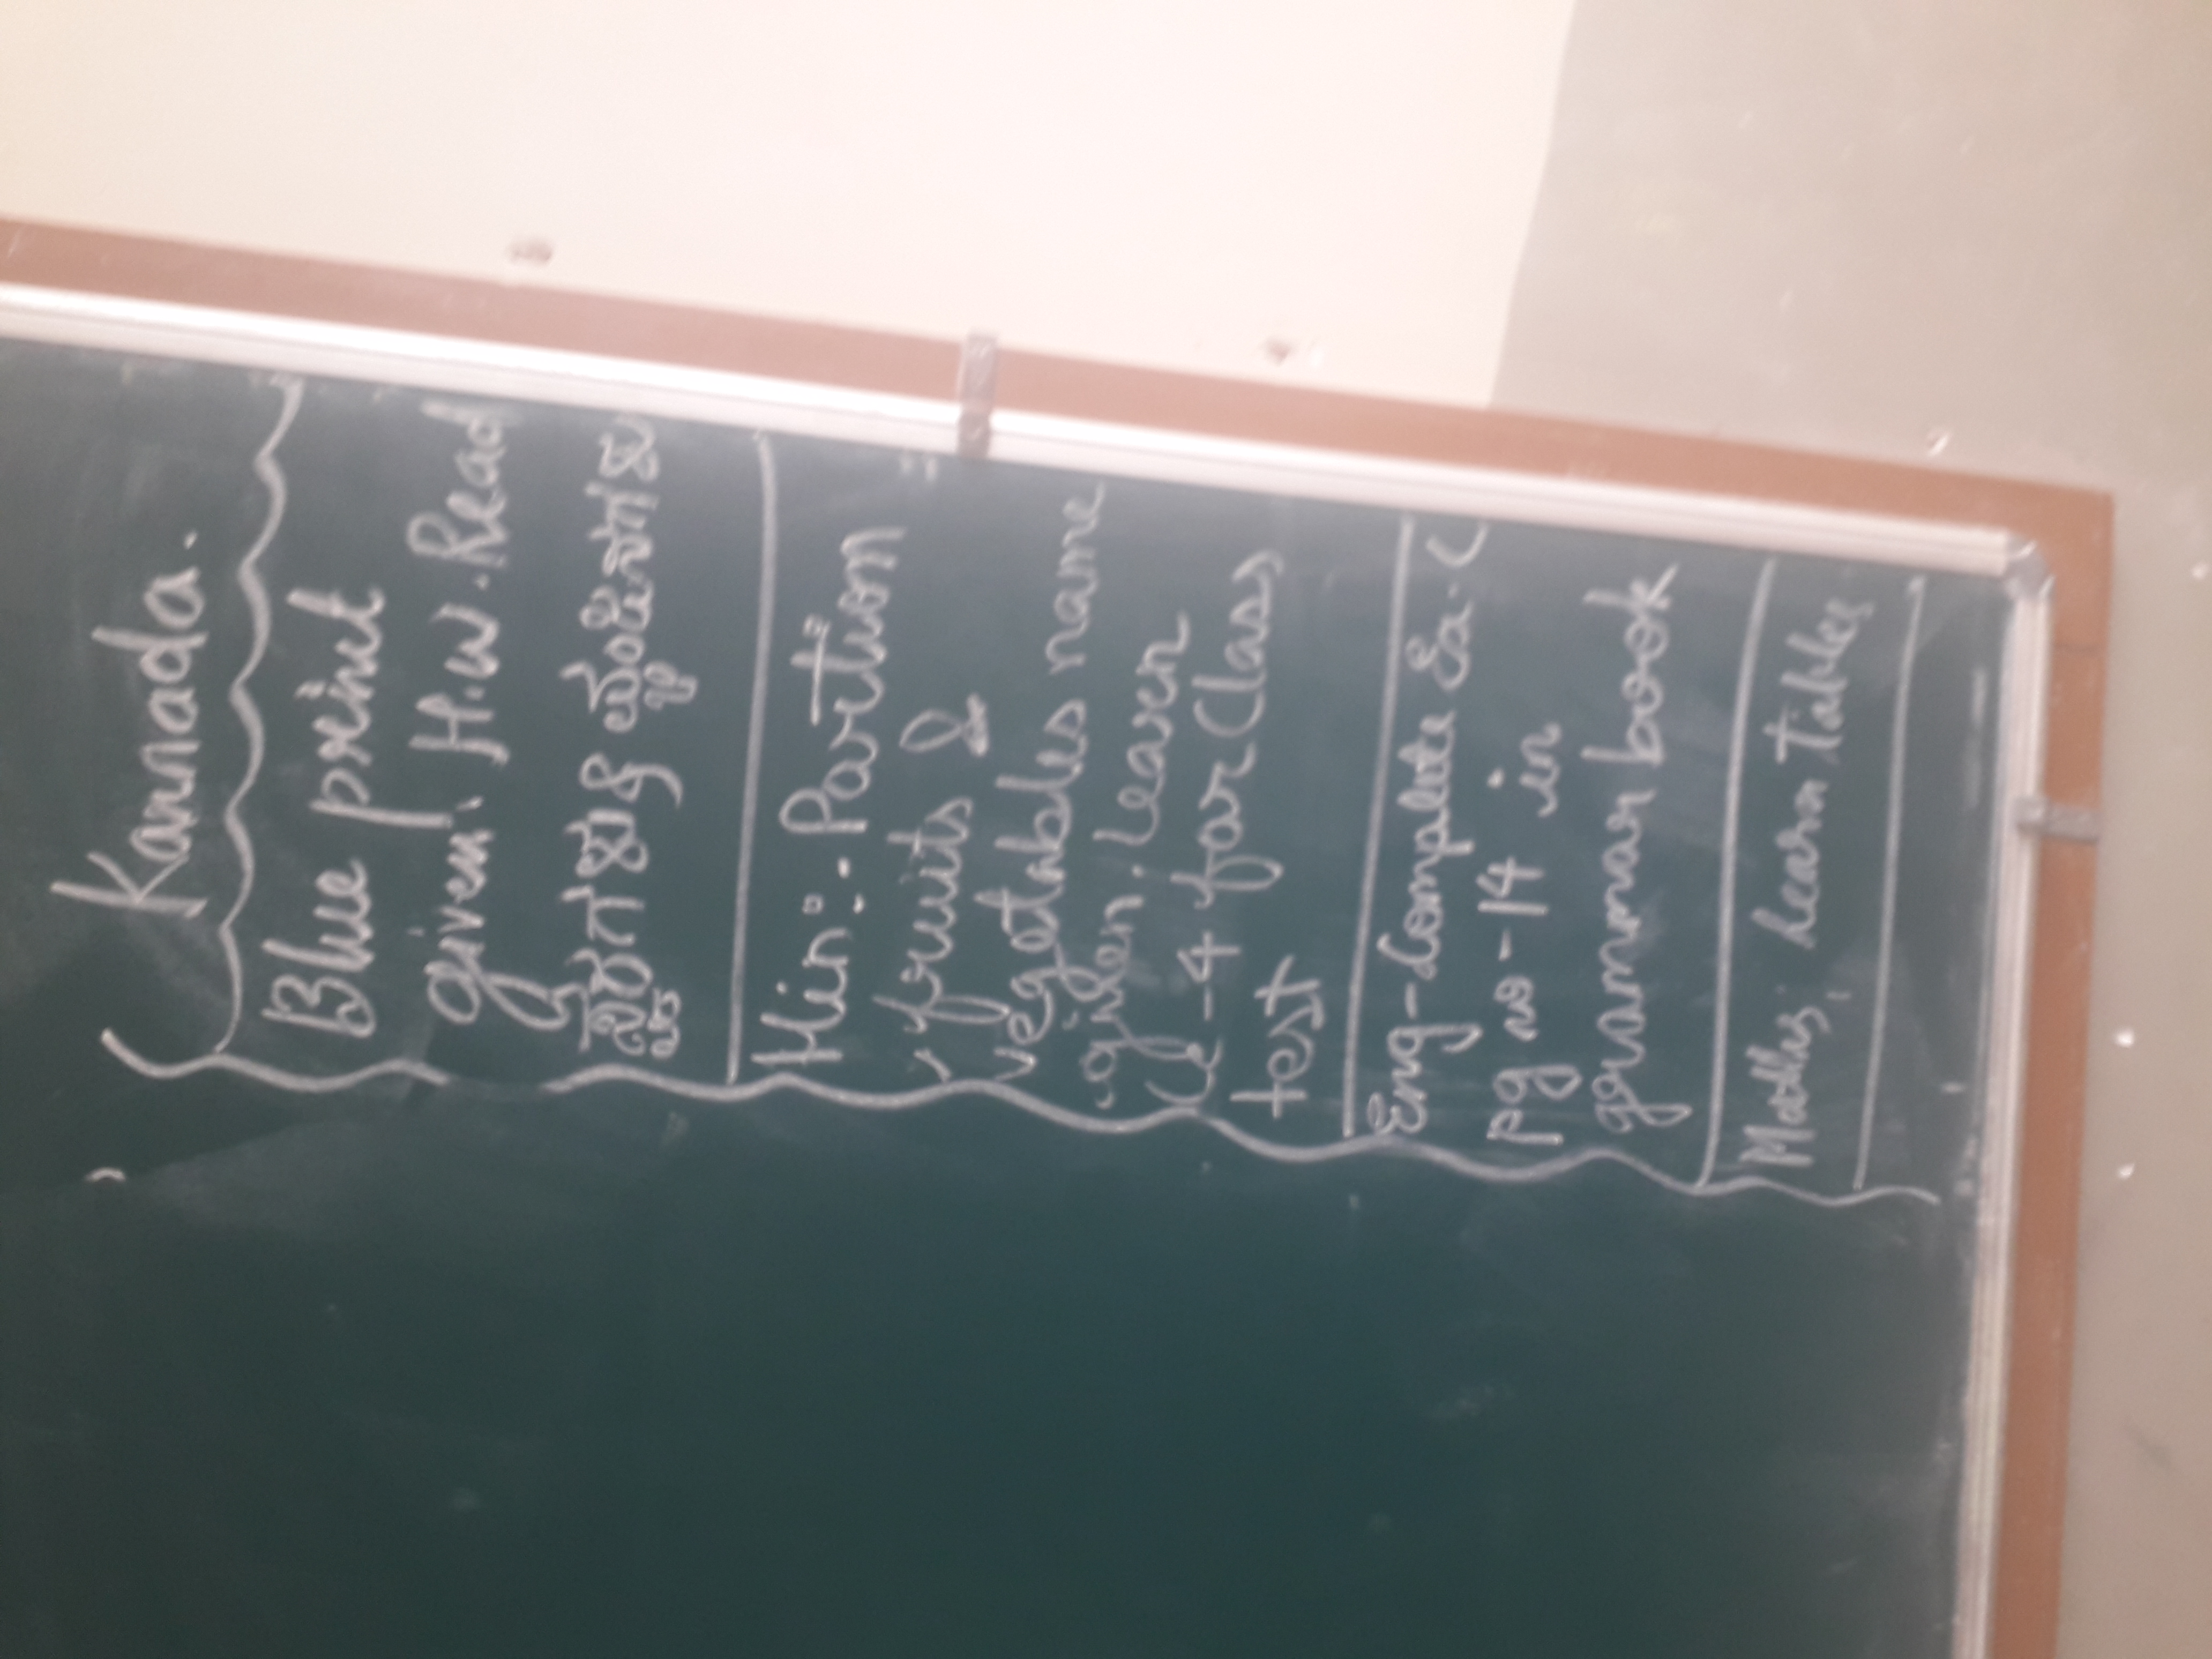 Kannada.
Blue print
given, H.W. Read
ಸ್ವರಗಳು & ವ್ಯಂಜನಗಳು
Hin :- Partion
fruits &
vegetables name
given. learn
Le - 4 for Class
test
Eng - Complete Ex. C
pg no - 14 in
grammar book
Maths; learn tables